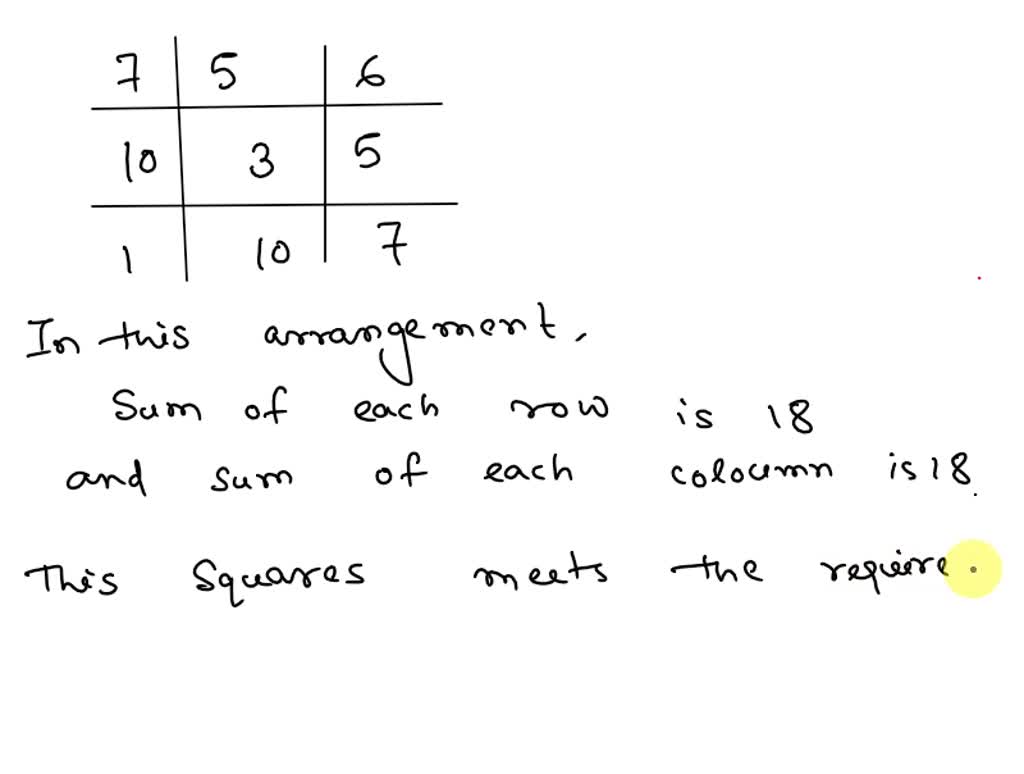 7 5 6
10 3 5
1 10 7
In this arrangement,
Sum of each row is 18
and sum of each coloumn is 18.
This Squares meets the require